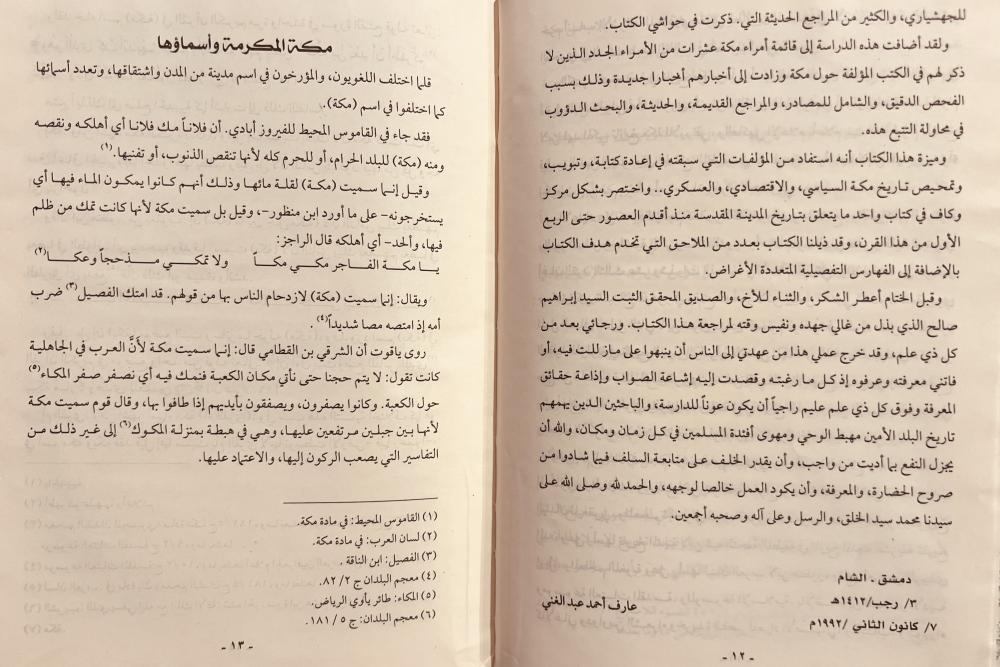 للجهشياري، والكثير من المراجع الحديثة التي. ذكرت في حواشي الكتاب.
ولقد أضافت هذه الدراسة إلى قائمة أمراء مكة عشرات من الأمراء الجدد الذين لا
ذكر لهم في الكتب المؤلفة حول مكة وزادت إلى أخبارهم أخبارا جديدة وذلك بسبب
الفحص الدقيق، والشامل للمصادر، والمراجع القديمة، والحديثة، والبحث الدؤوب
في محاولة التتبع هذه.
وميزة هذا الكتاب أنه استفاد من المؤلفات التي سبقته في إعادة كتابة، وتبويب،
وتمحيص تاريخ مكة السياسي، والاقتصادي، والعسكري.. واختصر بشكل مركز
وكاف في كتاب واحد ما يتعلق بتاريخ المدينة المقدسة منذ أقدم العصور حتى الربع
الأول من هذا القرن، وقد ذيلنا الكتاب بعدد من الملاحق التي تخدم هدف الكتاب
بالإضافة إلى الفهارس التفصيلية المتعددة الأغراض.
وقبل الختام أعطر الشكر، والثناء للأخ، والصديق المحقق الثبت السيد إبراهيم
صالح الذي بذل من غالي جهده ونفيس وقته لمراجعة هذا الكتاب. ورجائي بعد من
كل ذي علم، وقد خرج عملي هذا من عهدتي إلى الناس أن ينبهوا على ماز للت فيه، أو
فاتني معرفته وعرفوه إذ كل ما رغبته وقصدت إليه إشاعة الصواب وإذاعة حقائق
المعرفة وفوق كل ذي علم عليم راجياً أن يكون عوناً للدارسة، والباحثين الذين يهمهم
تاريخ البلد الأمين مهبط الوحي ومهوى أفئدة المسلمين في كل زمان ومكان، والله أن
يجزل النفع بما أديت من واجب، وأن يقدر الخلف على متابعة السلف فيما شادوا من
صروح الحضارة، والمعرفة، وأن يكون العمل خالصا لوجهه، والحمد لله وصلى الله على
سيدنا محمد سيد الخلق، والرسل وعلى آله وصحبه أجمعين.
دمشق . الشام
٣/ رجب/١٤١٢هـ
عارف أحمد عبد الغني
٧/ كانون الثاني /١٩٩٢م
- ١٢ -
مكة المكرمة وأسماؤها
قلما اختلف اللغويون، والمؤرخون في اسم مدينة من المدن واشتقاقها، وتعدد أسمائها
كما اختلفوا في اسم (مكة).
فقد جاء في القاموس المحيط للفيروز أبادي. أن فلاناً مك فلانا أي أهلكه ونقصه
ومنه (مكة) للبلد الحرام، أو للحرم كله لأنها تنقص الذنوب، أو تفنيها.(١)
وقيل إنما سميت (مكة) لقلة مائها وذلك أنهم كانوا يمكون الماء فيها أي
يستخرجونه- على ما أورد ابن منظور-، وقيل بل سميت مكة لأنها كانت تمك من ظلم
فيها، وألحد- أي أهلكه قال الراجز:
يا مكة الفاجر مكي مكاً ولا تمكي مذحجاً وعكا(٢)
ويقال: إنما سميت (مكة) لازدحام الناس بها من قولهم. قد امتك الفصيل(٣) ضرب
أمه إذ امتصه مصا شديداً(٤).
روى ياقوت أن الشرقي بن القطامي قال: إنما سميت مكة لأَنَّ العرب في الجاهلية
كانت تقول: لا يتم حجنا حتى نأتي مكان الكعبة فنمك فيه أي نصفر صفر المكاء(٥)
حول الكعبة. وكانوا يصفرون، ويصفقون بأيديهم إذا طافوا بها، وقال قوم سميت مكة
لأنها بين جبلين مرتفعين عليها، وهي في هبطة بمنزلة المكوك(٦) إلى غير ذلك من
التفاسير التي يصعب الركون إليها، والاعتماد عليها.
(١) القاموس المحيط: في مادة مكة.
(٢) لسان العرب: في مادة مكة.
(٣) الفصيل: ابن الناقة .
(٤) معجم البلدان ج ٢/ ٨٢.
(٥) المكاء: طائر يأوي الرياض.
(٦) معجم البلدان: ج ٥ / ١٨١.
- ١٣ -